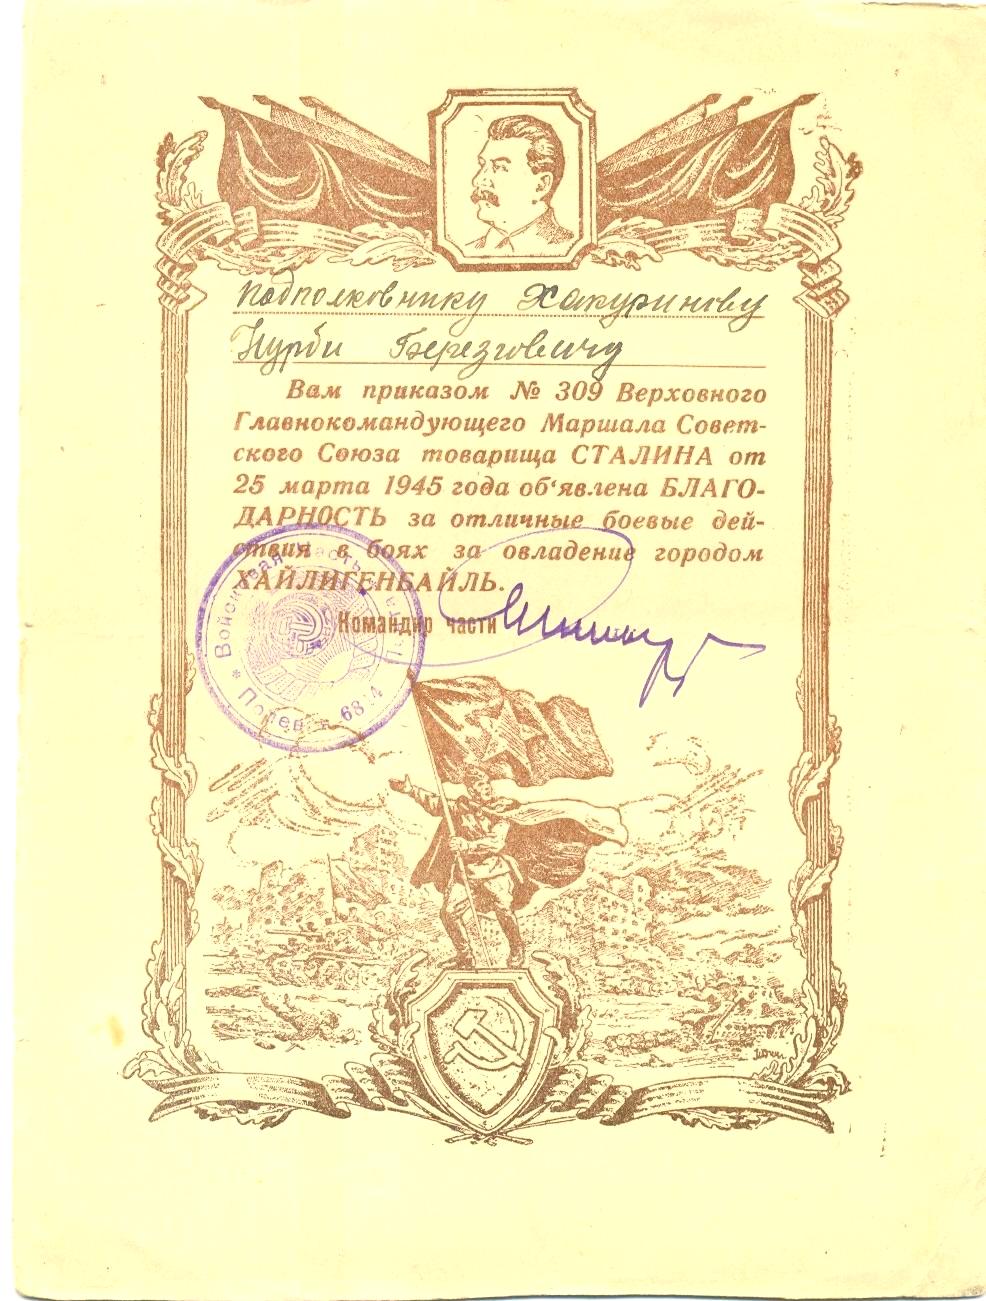 Подполковнику Хакуринову
Нурби Березговичу
Вам приказом № 309 Верховного
Главнокомандующего Маршала Совет-
ского Союза товарища СТАЛИНА от
25 марта 1945 года об‘явлена БЛАГО-
ДАРНОСТЬ за отличные боевые дей-
ствия в боях за овладение городом
ХАЙЛИГЕНБАЙЛЬ.
Командир части
Войсковая часть
Полевая